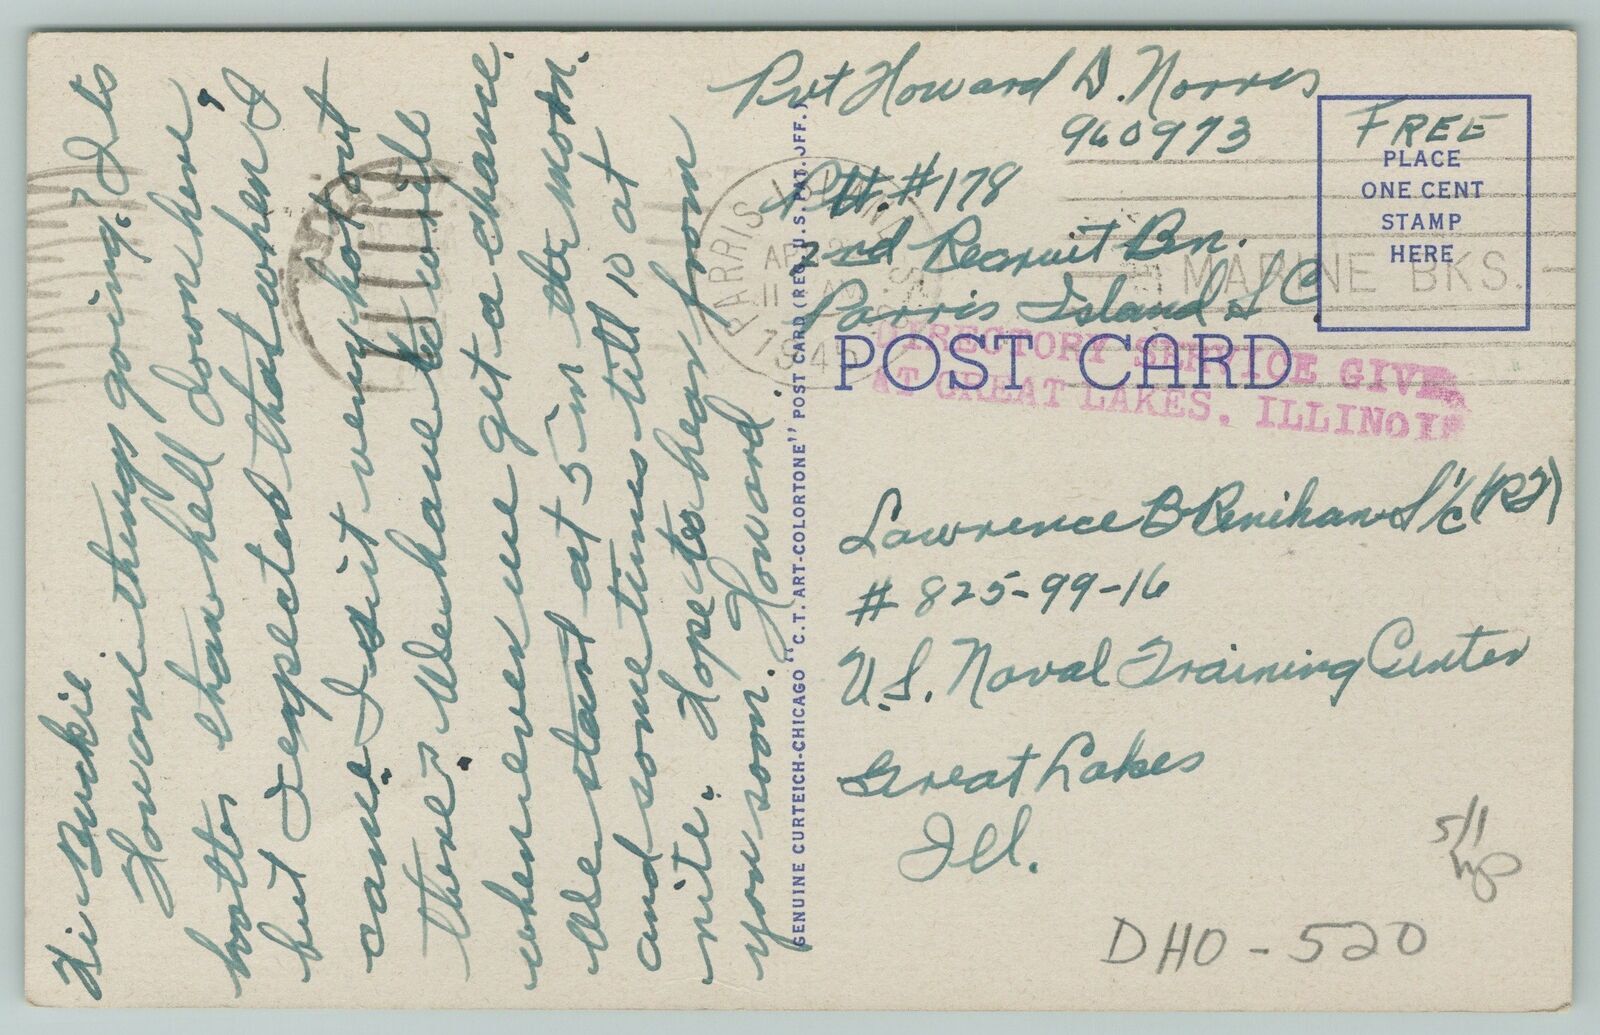 Hi Buckie.
How are things going? Its
hotter than hell down here,
but I expected that when I
came. Is it very hot out
there. We have to write
whenever we get a chance.
We start at 5 in the morn.
and some times till 10 at
nite. Hope to hear from
you soon. Howard
GENUINE CURTEICH-CHICAGO "C.T. ART-COLORTONE" POST CARD (REG. U.S. PAT. OFF.)
Pvt Howard D. Norris
960973
Plt. #178
2nd Recruit Bn.
Parris Island S C
FREE
PLACE
ONE CENT
STAMP
HERE
PARRIS ISLAND S.C.
11 AM
1945
MARINE BKS.
POST CARD
DIRECTORY SERVICE GIVE
AT GREAT LAKES, ILLINOIS
Lawrence B Renihan S 1/c (RT)
# 825-99-16
U.S. Naval Training Center
Great Lakes
Ill.
5/1
DHO-520